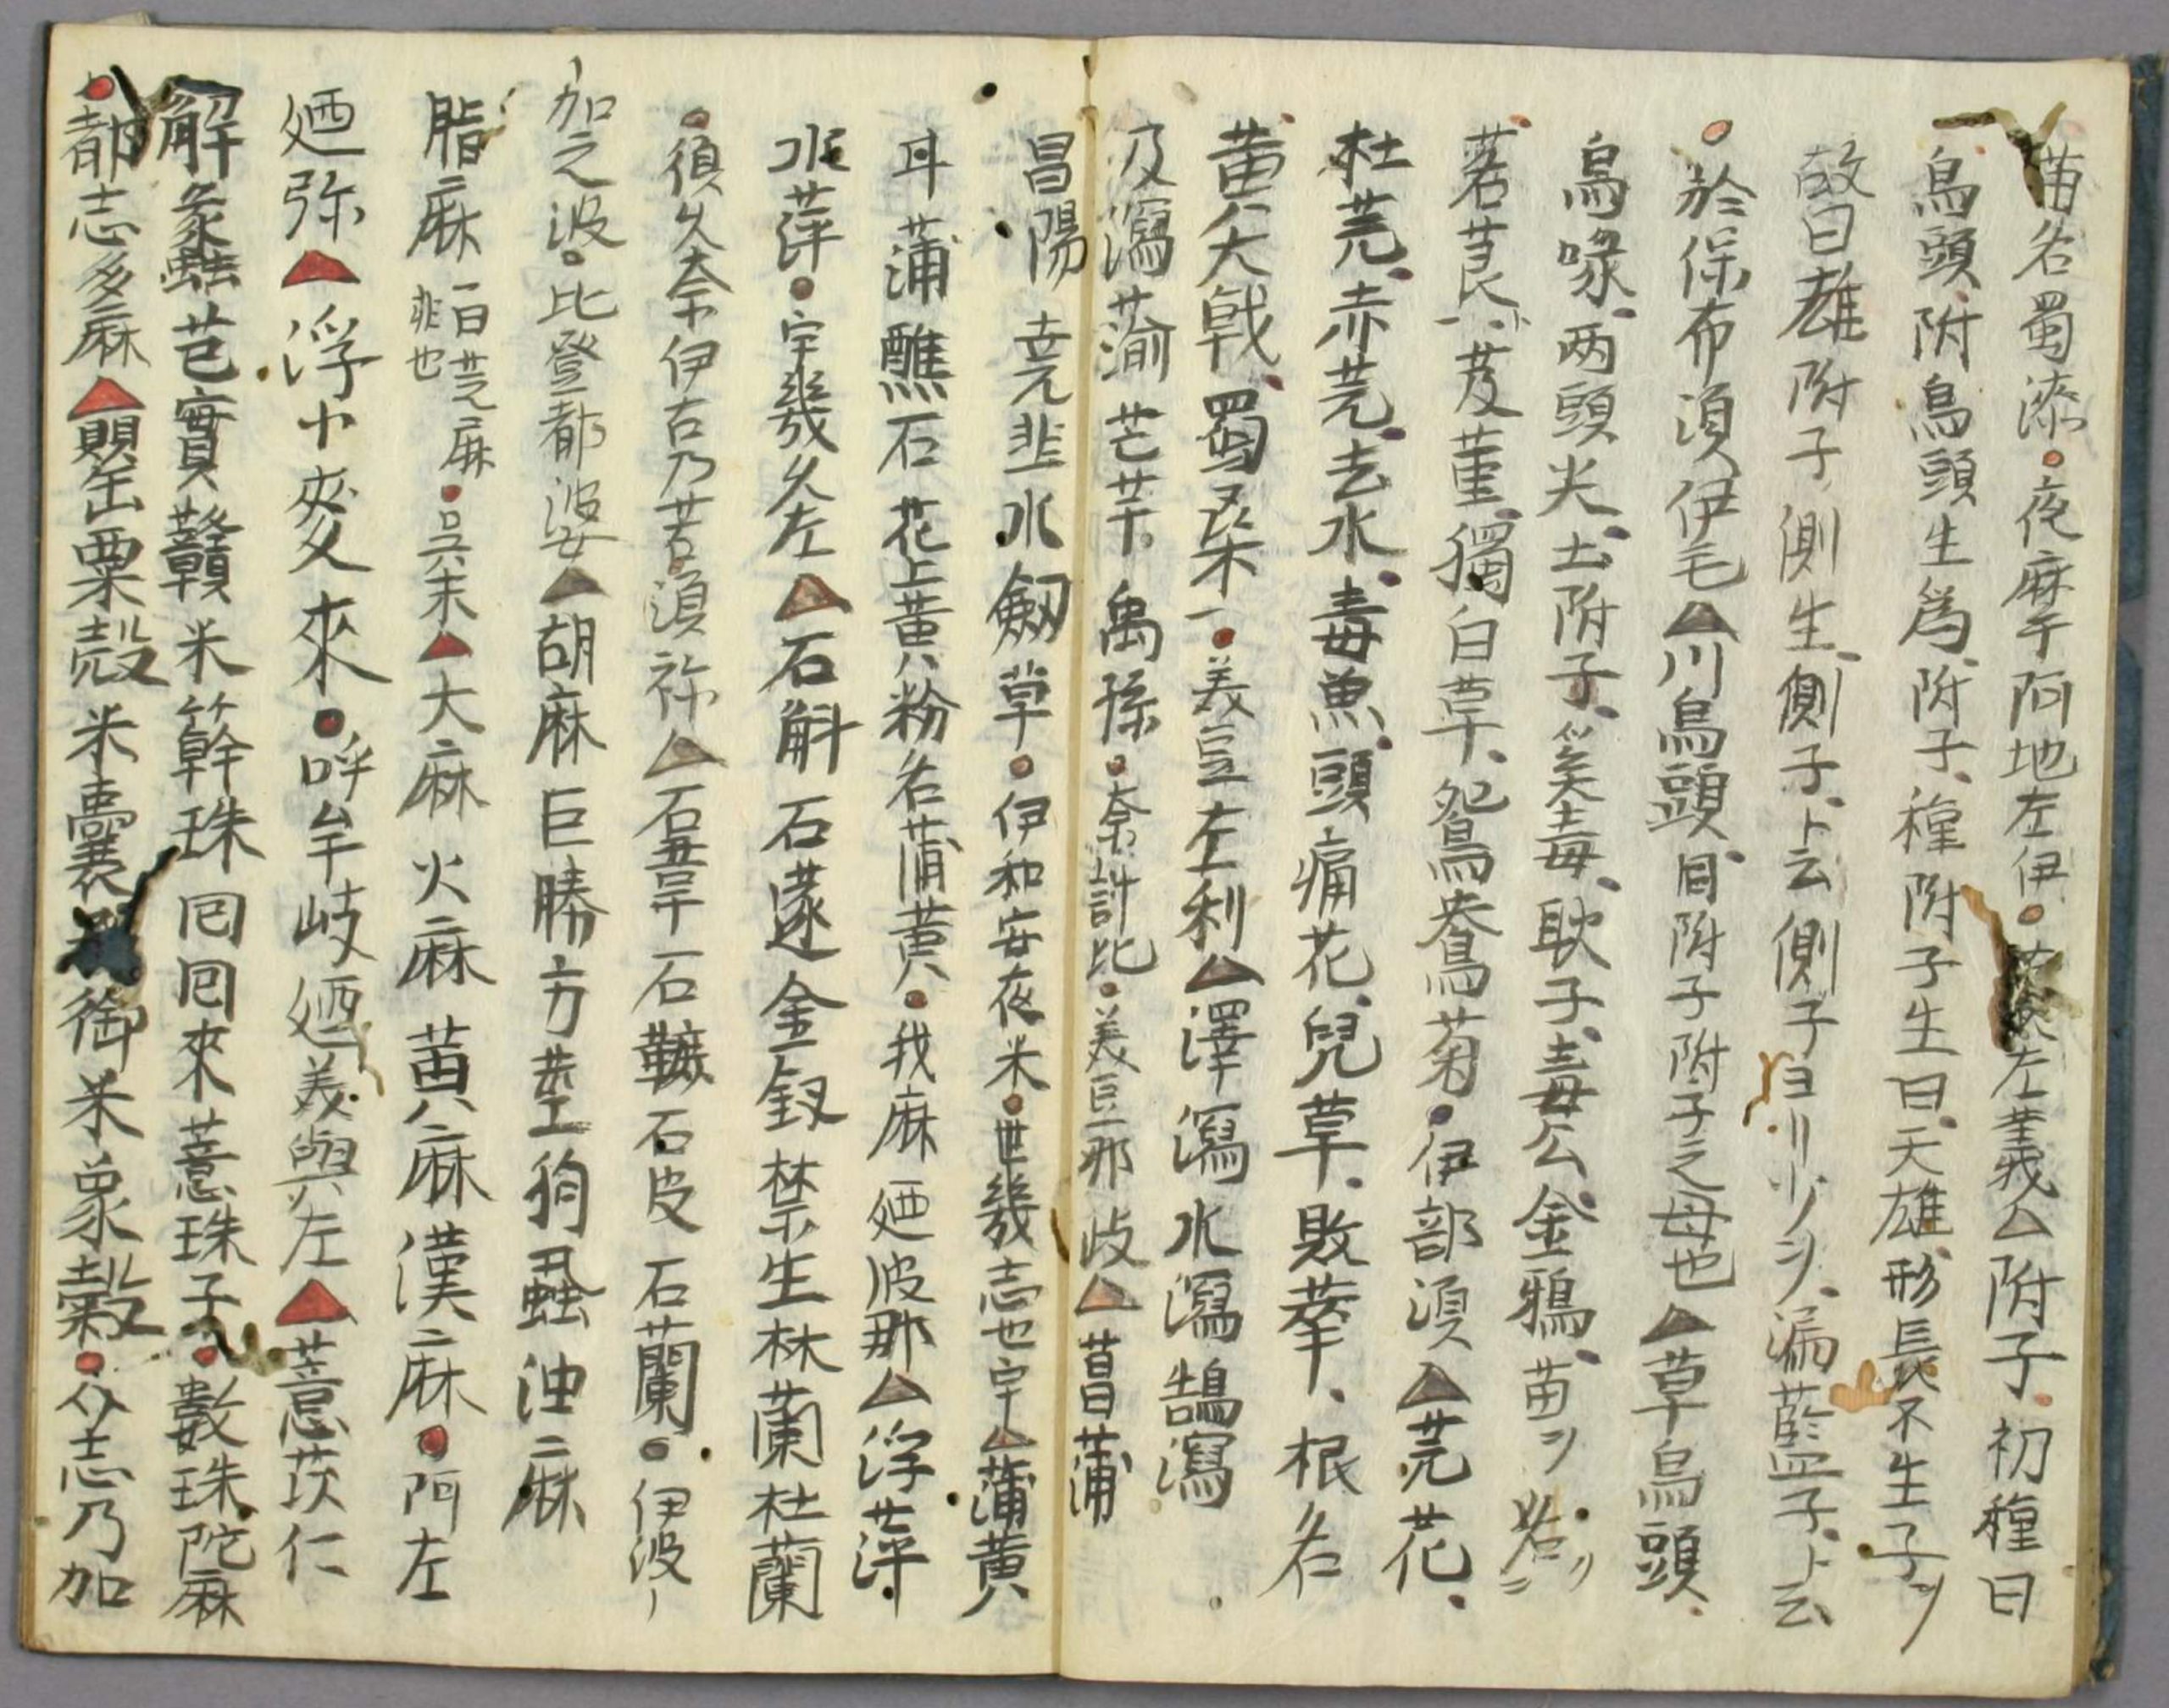 苗名蜀漆夜麻宇阿地左伊左義附子初種曰
烏頭附烏頭生爲附子種附子生曰天雄形長不生子ヲ
故曰雄附子側生側子ト云側子ヨリ少ヲ漏藍子ト云
於保布須伊毛川烏頭同附子附子之母也草烏頭
烏喙両頭尖土附子奚毒耿子毒公金鴉苗ヲ
莨芨菫獨白草鴛鴦菊伊部須芫花
杜芫赤芫去水毒魚頭痛花兒草敗華根名
黄大戟蜀桒一美豆左利澤瀉水瀉鵠瀉
及瀉蕍芒芋禹孫奈計比美豆那岐菖蒲
昌陽堯韭水劔草伊和安夜米世幾志也宇蒲黄
耳蒲醮石花上黄粉名蒲黄我麻廼波那浮萍
水萍宇幾久左石斛石蓫金釵禁生林蘭杜蘭
須久奈伊古乃苦須祢石韋石䩾石皮石蘭伊波
加之波比登都婆胡麻巨勝方莖狗蝨油麻
脂麻一曰芝麻非也呉末大麻火麻黄麻漢麻阿左
廼弥浮小麥來呼牟岐廼美與左薏苡仁
解蠡芑實贛米簳珠囘囘來薏珠子數珠陀麻
都志多麻罌粟殻米囊御米象穀志乃加